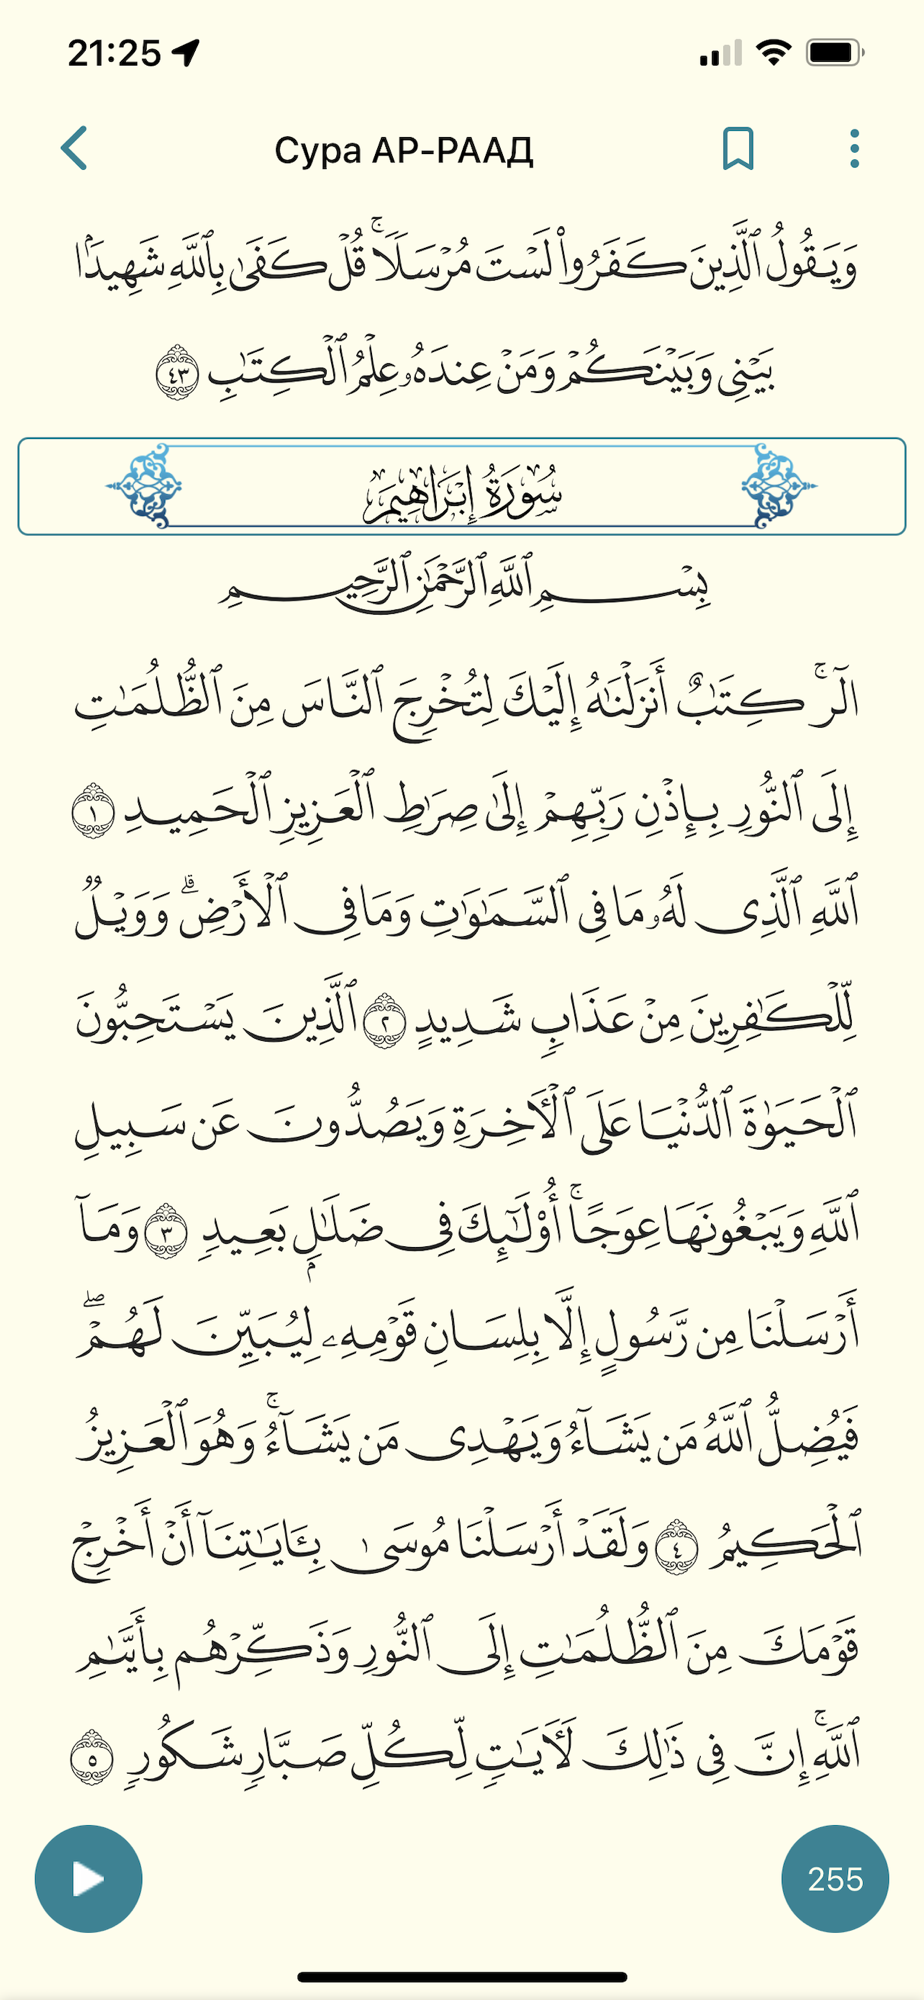 21:25
Сура АР-РААД
وَيَقُولُ ٱلَّذِينَ كَفَرُوا۟ لَسْتَ مُرْسَلًۭا ۚ قُلْ كَفَىٰ بِٱللَّهِ شَهِيدًۢا
بَيْنِى وَبَيْنَكُمْ وَمَنْ عِندَهُۥ عِلْمُ ٱلْكِتَـٰبِ ٤٣
سُورَةُ إِبْرَاهِيمَ
بِسْمِ ٱللَّهِ ٱلرَّحْمَـٰنِ ٱلرَّحِيمِ
الٓر ۚ كِتَـٰبٌ أَنزَلْنَـٰهُ إِلَيْكَ لِتُخْرِجَ ٱلنَّاسَ مِنَ ٱلظُّلُمَـٰتِ
إِلَى ٱلنُّورِ بِإِذْنِ رَبِّهِمْ إِلَىٰ صِرَٰطِ ٱلْعَزِيزِ ٱلْحَمِيدِ ١
ٱللَّهِ ٱلَّذِى لَهُۥ مَا فِى ٱلسَّمَـٰوَٰتِ وَمَا فِى ٱلْأَرْضِ ۗ وَوَيْلٌۭ
لِّلْكَـٰفِرِينَ مِنْ عَذَابٍۢ شَدِيدٍ ٢ ٱلَّذِينَ يَسْتَحِبُّونَ
ٱلْحَيَوٰةَ ٱلدُّنْيَا عَلَى ٱلْـَٔاخِرَةِ وَيَصُدُّونَ عَن سَبِيلِ
ٱللَّهِ وَيَبْغُونَهَا عِوَجًا ۚ أُو۟لَـٰٓئِكَ فِى ضَلَـٰلٍۭ بَعِيدٍۢ ٣ وَمَآ
أَرْسَلْنَا مِن رَّسُولٍ إِلَّا بِلِسَانِ قَوْمِهِۦ لِيُبَيِّنَ لَهُمْ ۖ
فَيُضِلُّ ٱللَّهُ مَن يَشَآءُ وَيَهْدِى مَن يَشَآءُ ۚ وَهُوَ ٱلْعَزِيزُ
ٱلْحَكِيمُ ٤ وَلَقَدْ أَرْسَلْنَا مُوسَىٰ بِـَٔايَـٰتِنَآ أَنْ أَخْرِجْ
قَوْمَكَ مِنَ ٱلظُّلُمَـٰتِ إِلَى ٱلنُّورِ وَذَكِّرْهُم بِأَيَّىٰمِ
ٱللَّهِ ۚ إِنَّ فِى ذَٰلِكَ لَـَٔايَـٰتٍۢ لِّكُلِّ صَبَّارٍۢ شَكُورٍۢ ٥
255